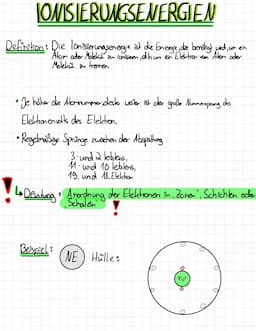 IONISIERUNGSENERGIEN
Definition: Die Ionisierungsenergie ist die Energie die benötigt wird, um ein
Atom oder Molekül zu ionisieren, d.h. um ein Elektron vom Atom oder
Molekül zu trennen.
• Je höher die Atomnummer desto weiter ist der große
Elektronenvolts des Elektron.
• Regelmäßige Sprünge zwischen der Abspaltung
3. und 2 letztens,
11. und 10 letztens,
19. und 18. Elektron
! ↳ Deutung: Anordnung der Elektronen in "Zonen", Schichten oder
Schalen !
Beispiel: NE Hülle: